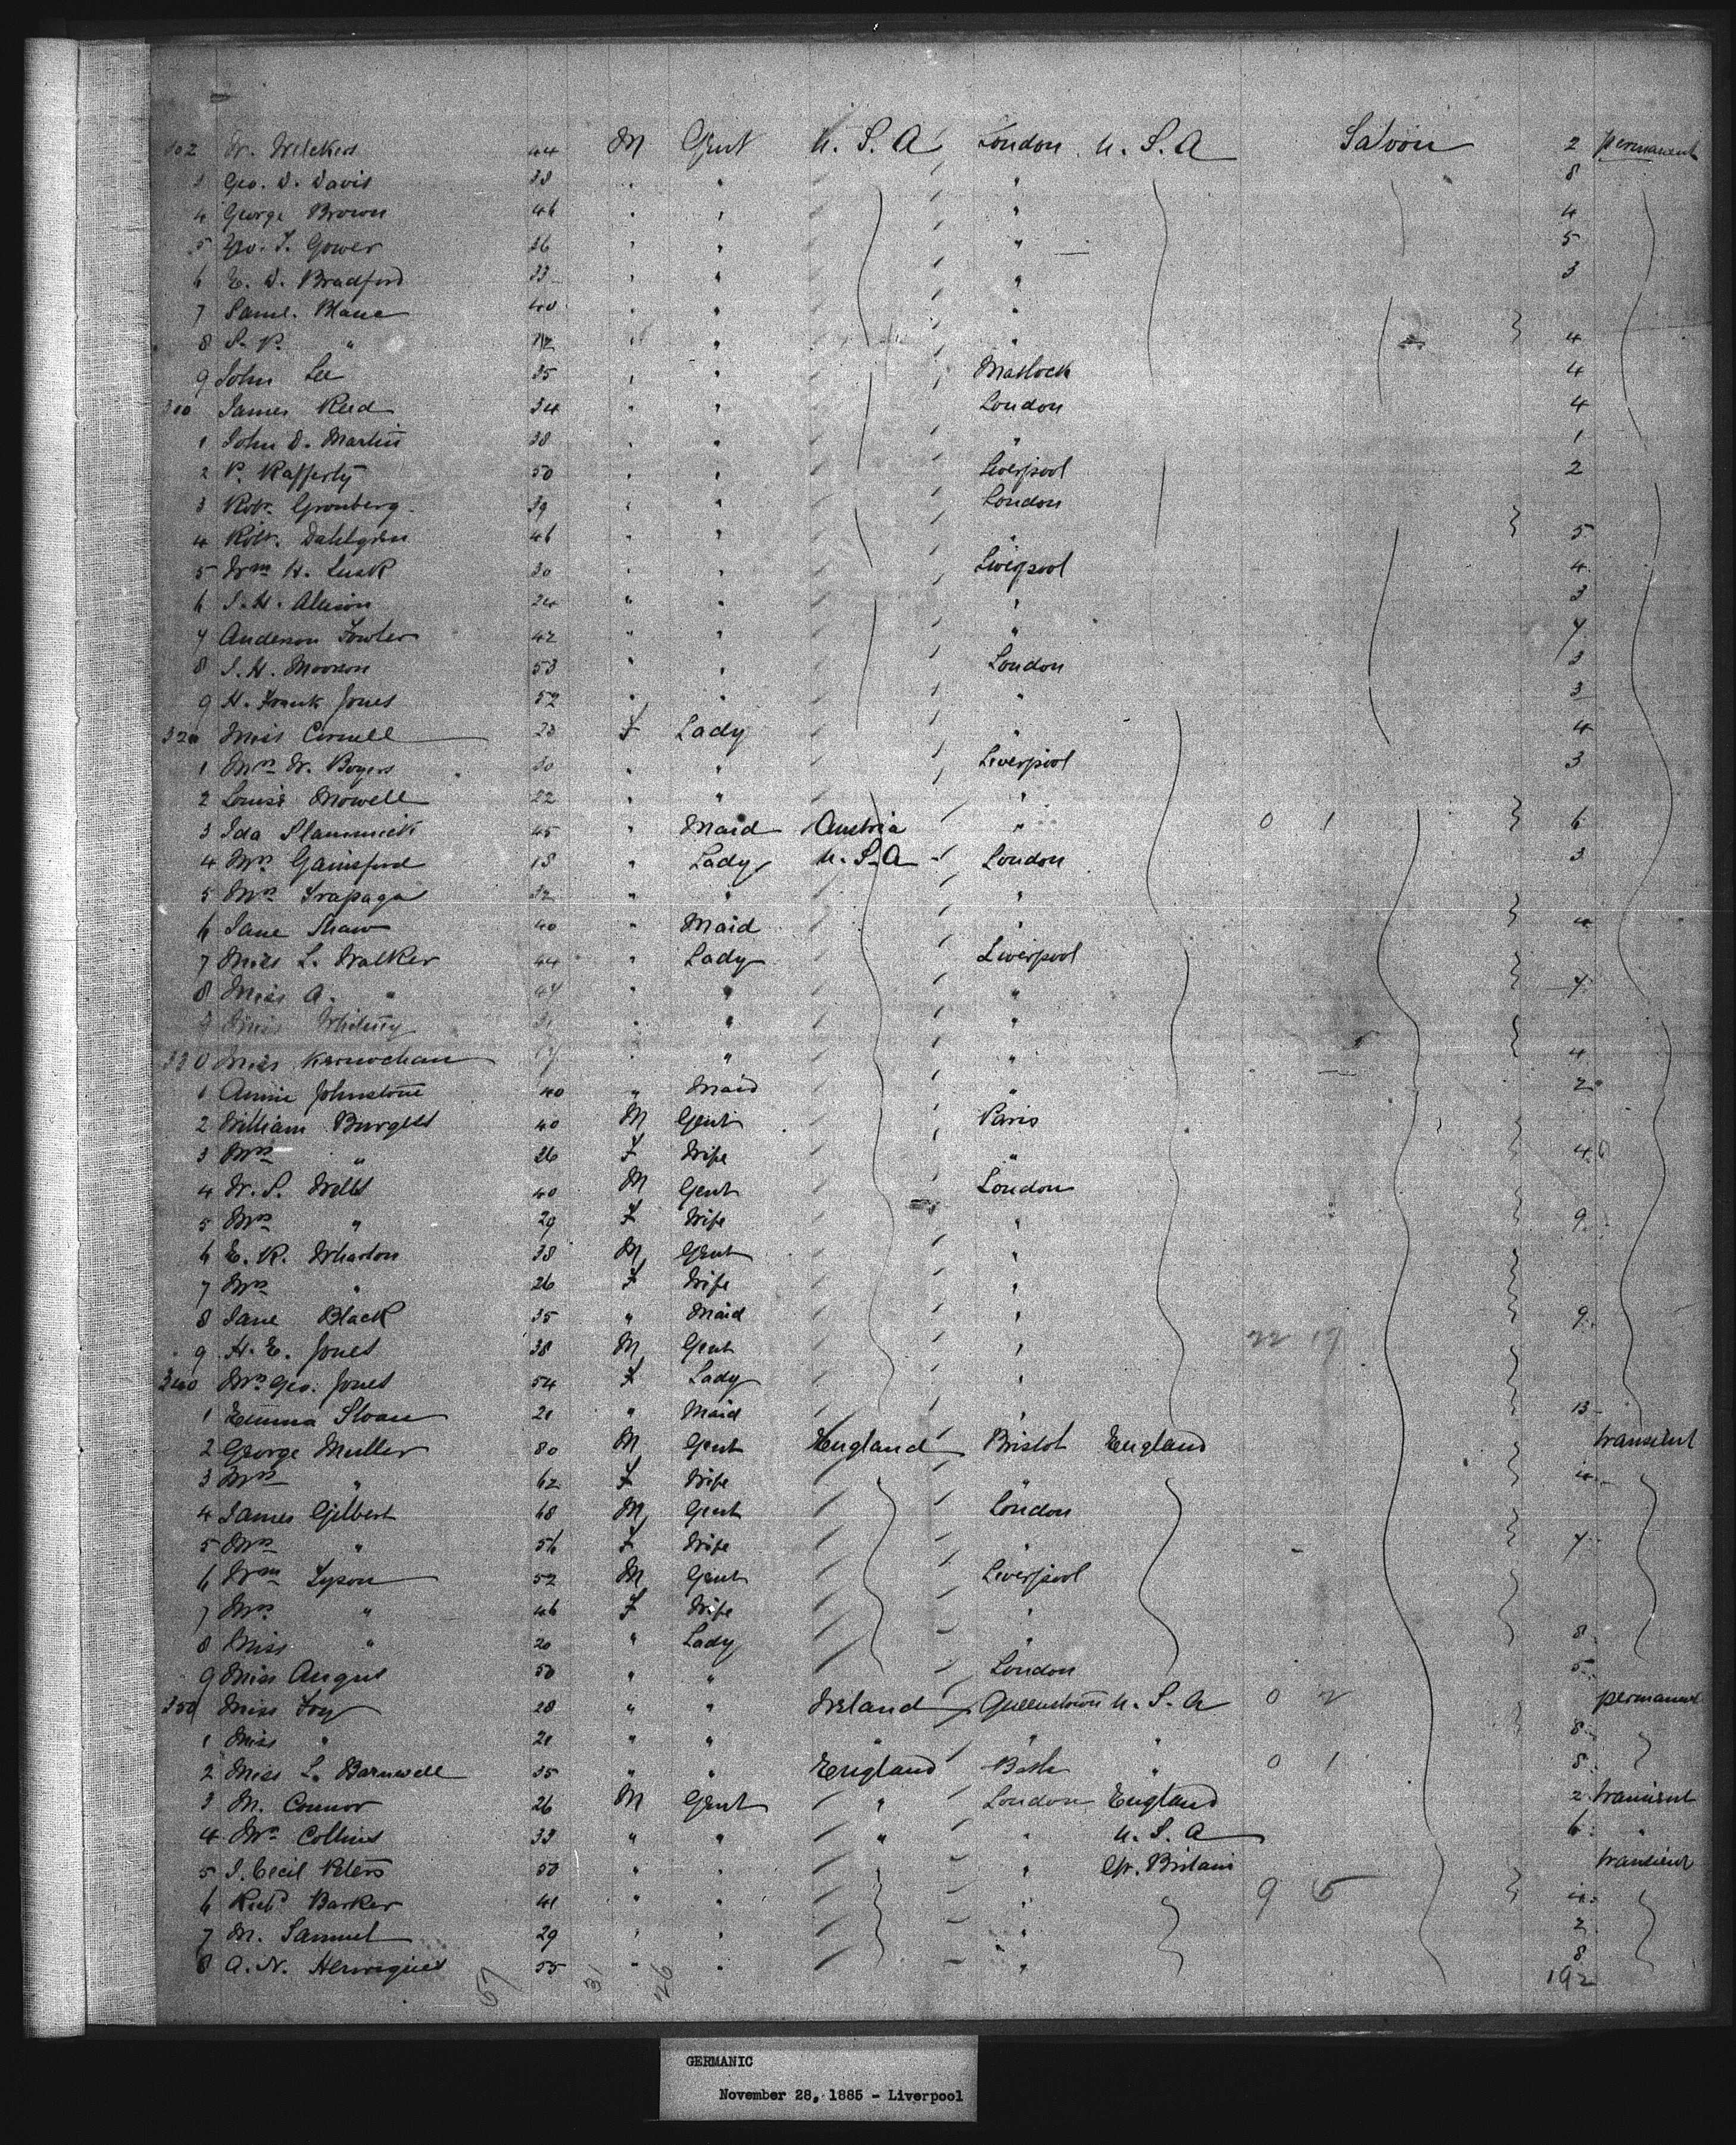 302 W. 44 M Gent U.S.A London U.S.A Saloon 2 permanent
3 Geo. D. Davis 38 " " " 8
4 George Brown 46 " " " 4
5 Geo. T. Gower 36 " " " 5
6 E. D. Bradford 33 " " " 3
7 Saml. Blane 40 " " "
8 S. P. " " " " 4
9 John Lee 35 " " Matlock 4
310 James Reid 34 " " London 4
1 John D. Martin 38 " " " 1
2 P. Rafferty 50 " " Liverpool 2
3 Robt. Gronberg 39 " " London
4 Robt. Dahlgren 46 " " " 5
5 Wm H. Lusk 30 " " Liverpool 4
6 J. H. Allison 24 " " " 3
7 Anderson Fowler 42 " " " 7
8 J. H. Morrison 53 " " London 3
9 H. Frank Jones 52 " " " 3
320 Miss Cornell 23 F Lady " 4
1 Mrs W. Bogers 30 " " Liverpool 3
2 Louise Mowell 22 " " "
3 Ida 45 " Maid Austria " 0 1 6
4 Mrs Gainsford 18 " Lady U.S.A London 3
5 Mrs Trapaga 32 " " "
6 Jane Shaw 40 " Maid " 4
7 Miss L. Walker 44 " Lady Liverpool
8 Miss A. " 44 " " " 7
9 Miss Whitney " " "
330 Miss Kernochan " " " 4
1 Annie Johnstone 40 " Maid " 2
2 William Burgess 40 M Gent Paris
3 Mrs " 26 F Wife " 4
4 W. S. Wells 40 M Gent London
5 Mrs " 29 F Wife " 9
6 E. R. Wharton 38 M Gent "
7 Mrs " 26 F Wife "
8 Jane Black 35 " Maid " 9
9 H. E. Jones 38 M Gent " 22 17
340 Mrs Geo. Jones 54 F Lady "
1 Emma Sloan 21 " Maid 13
2 George Muller 80 M Gent England Bristol England transient
3 Mrs " 62 F Wife 4
4 James Gilbert 68 M Gent London
5 Mrs " 56 F Wife " 7
6 Wm Tyson 52 M Gent Liverpool
7 Mrs " 46 F Wife "
8 Miss " 20 " Lady " 8
9 Miss Angus 50 " " London 5
350 Miss Foy 28 " " Ireland Queenstown U.S.A 0 2 permanent
1 Miss " 21 " " " " " 8 "
2 Miss L. Barnwell 35 " " England Bath " 0 1 8
3 M. Connor 26 M Gent " London England 2 transient
4 Mr Collins 33 " " " " U.S.A 6 "
5 J. Cecil Peters 50 " " " " Gt. Britain transient
6 Richd Barker 41 " " " 9 5 4
7 M. Samuel 29 " " " 2
8 A. N. Henriques 55 " " " 8
57 31 26 192
GERMANIC
November 28, 1885 - Liverpool